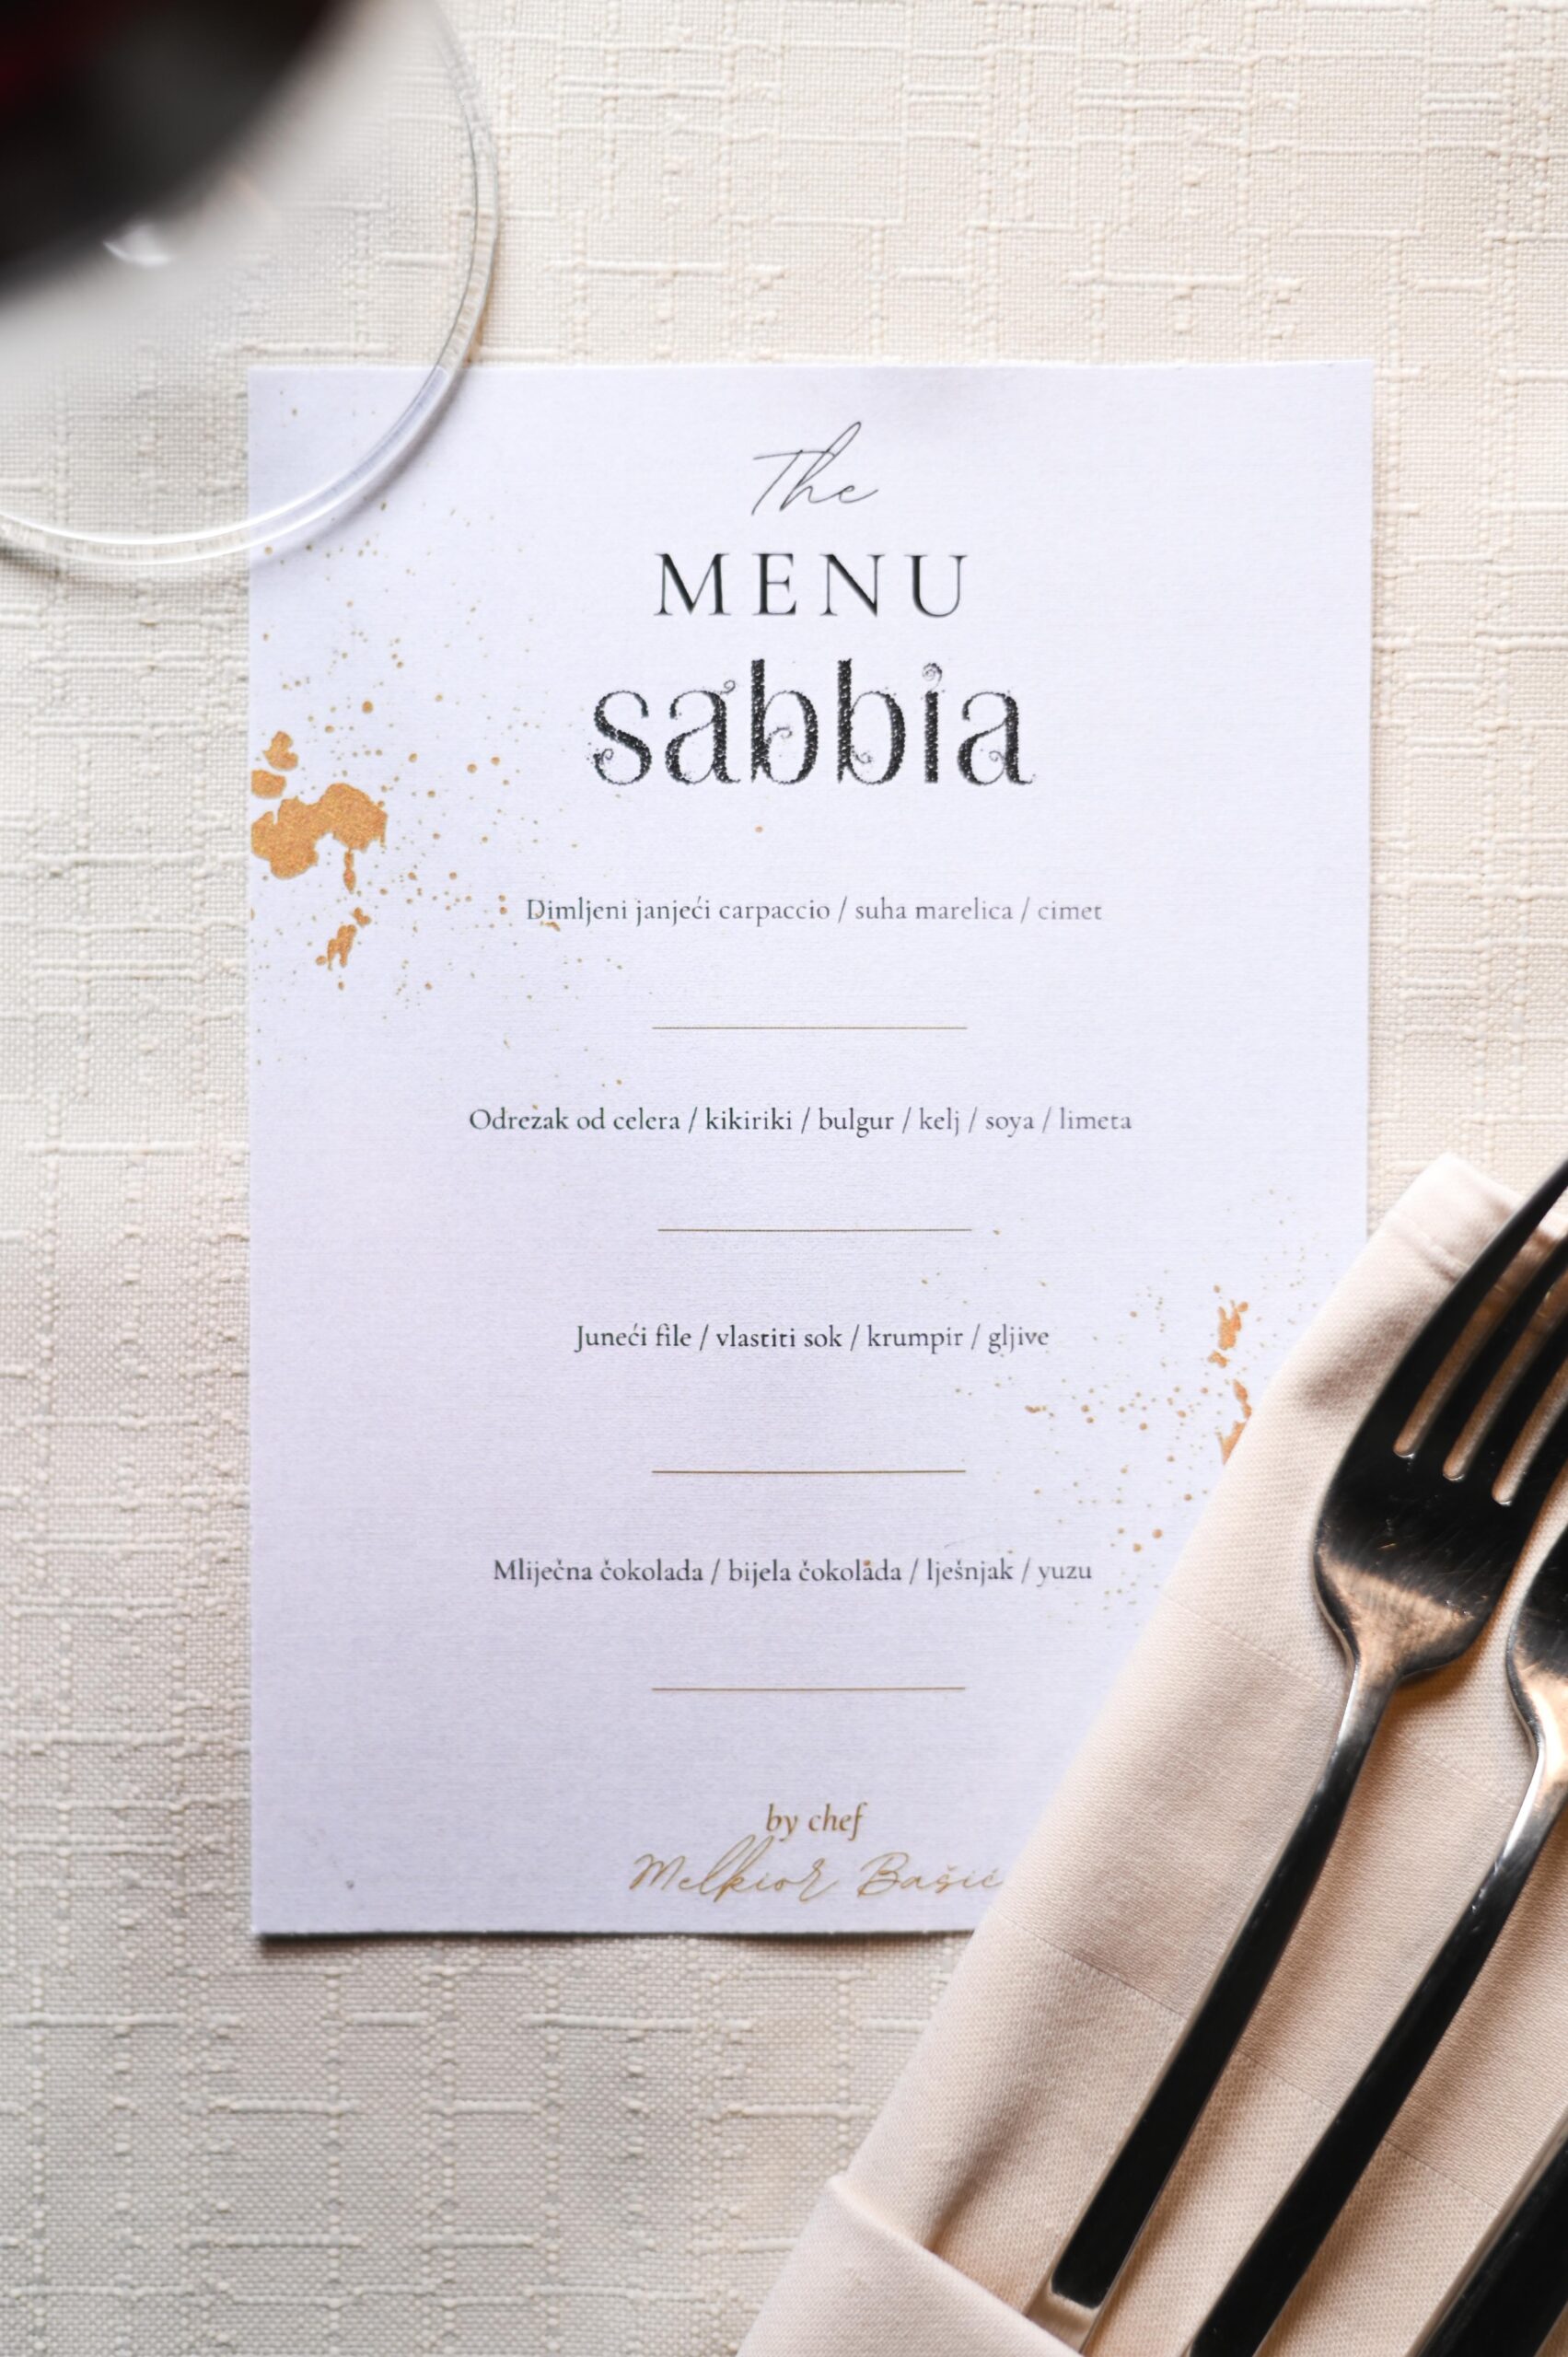 The
MENU
sabbia
Dimljeni janjeći carpaccio / suha marelica / cimet
Odrezak od celera / kikiriki / bulgur / kelj / soya / limeta
Juneći file / vlastiti sok / krumpir / gljive
Mliječna čokolada / bijela čokolada / lješnjak / yuzu
by chef
Melkior Bašić